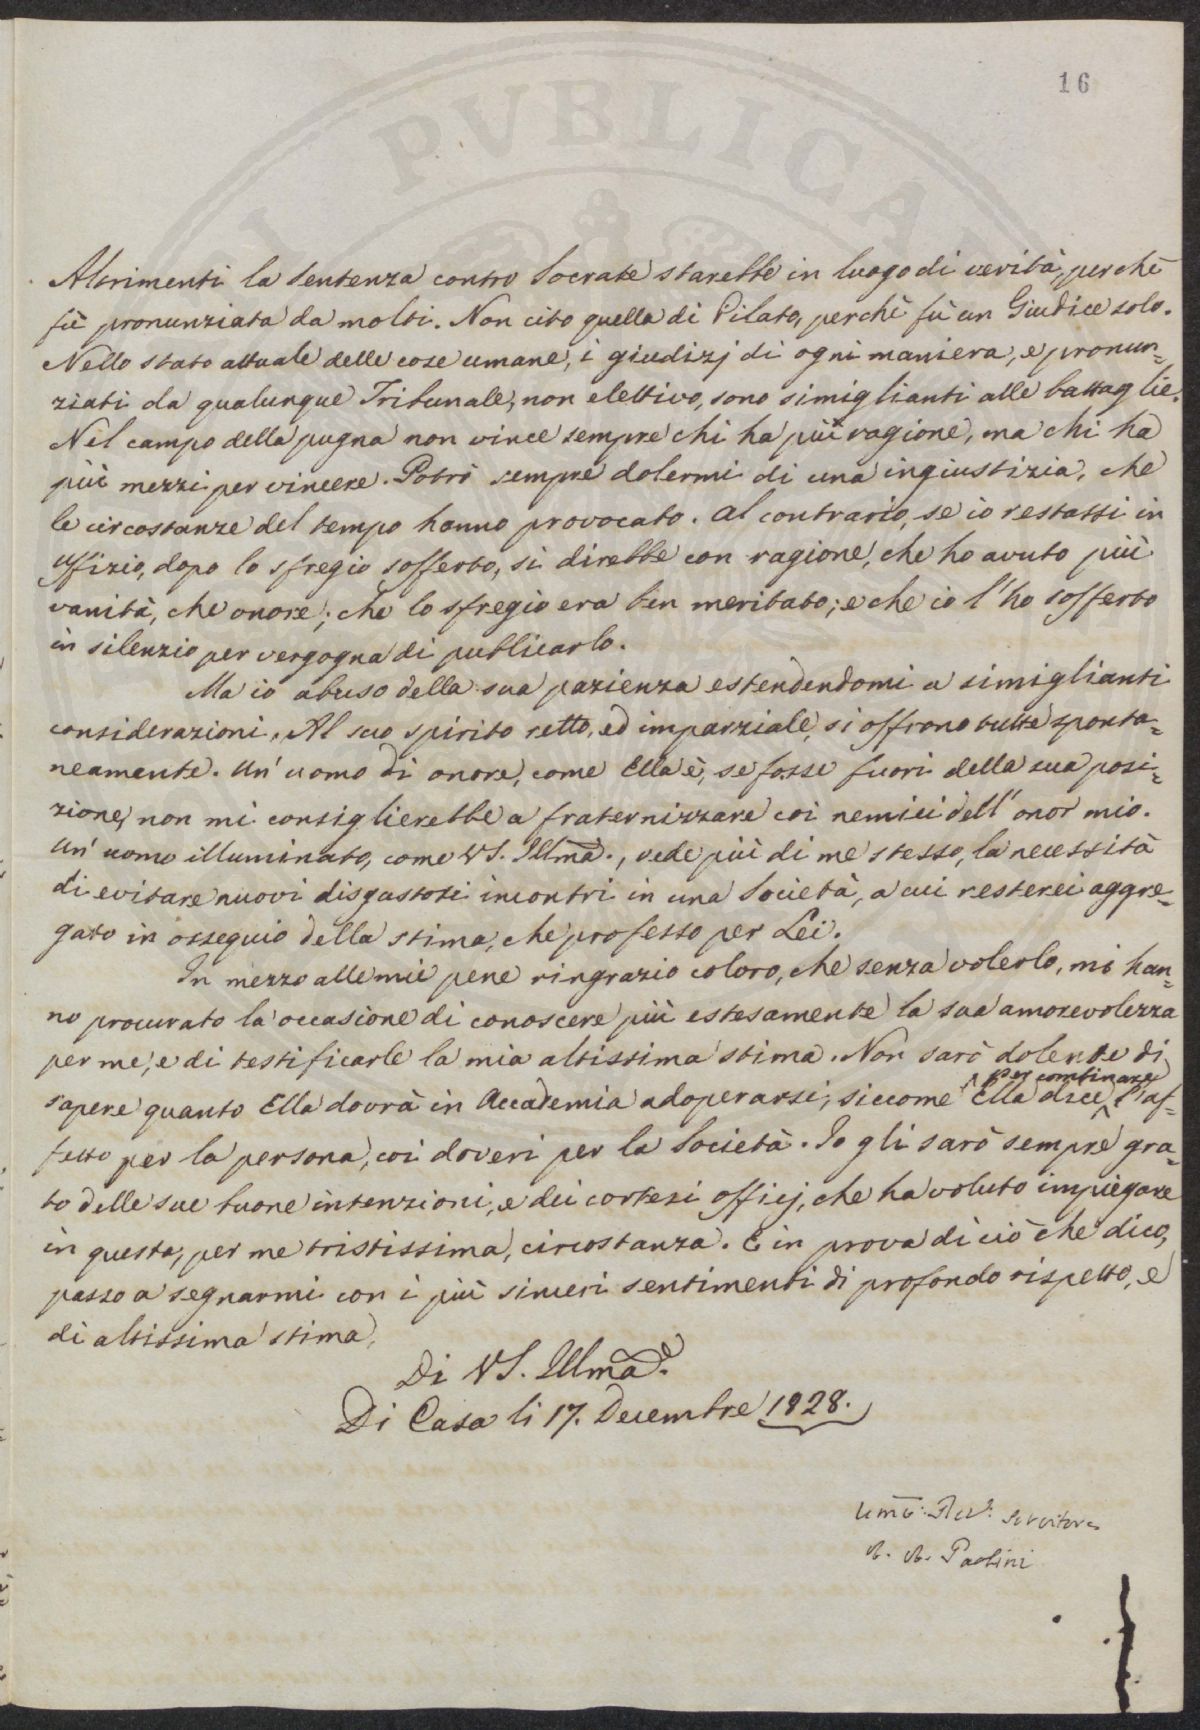 PVBLICA
16
Altrimenti la Sentenza contro Socrate starebbe in luogo di verità, perchè
fù pronunziata da molti. Non cito quella di Pilato, perchè fù un Giudice solo.
Nello stato attuale delle cose umane, i giudizj di ogni maniera, e pronun=
ziati da qualunque Tribunale, non elettivo, sono simiglianti alle battaglie.
Nel campo della pugna non vince sempre chi ha più ragione, ma chi ha
più mezzi per vincere. Potrò sempre dolermi di una ingiustizia, che
le circostanze del tempo hanno provocato. Al contrario, se io restassi in
uffizio, dopo lo sfregio sofferto, si direbbe con ragione, che ho avuto più
vanità, che onore; che lo sfregio era ben meritato; e che io l'ho sofferto
in silenzio per vergogna di publicarlo.
Ma io abuso della sua pazienza estendendomi a simiglianti
considerazioni. Al suo spirito retto, ed imparziale, si offrono tutte sponta=
neamente. Un'uomo di onore, come Ella è, se fosse fuori della sua posi=
zione, non mi consiglierebbe a fraternizzare coi nemici dell'onor mio.
Un'uomo illuminato, come VS. Illma., vede più di me stesso, la necessità
di evitare nuovi disgustosi incontri in una Società, a cui resterei aggre=
gato in ossequio della stima, che professo per Lei.
In mezzo alle mie pene ringrazio coloro, che senza volerlo, mi han=
no procurato la occasione di conoscere più estesamente la sua amorevolezza
per me, e di testificarle la mia altissima stima. Non sarò dolente di
sapere quanto Ella dovrà in Accademia adoperarsi, siccome Ella dice per combinare l'af=
fetto per la persona, coi doveri per la Società. Io gli sarò sempre gra=
to delle sue buone intenzioni, e dei cortesi officj, che ha voluto impiegare
in questa, per me tristissima, circostanza. E in prova di ciò che dico,
passo a segnarmi con i più sinceri sentimenti di profondo rispetto, e
di altissima stima,
Di VS. Illma.
Di Casa li 17. Decembre 1828.
Umo: Dev: Servitore
A. A. Paolini